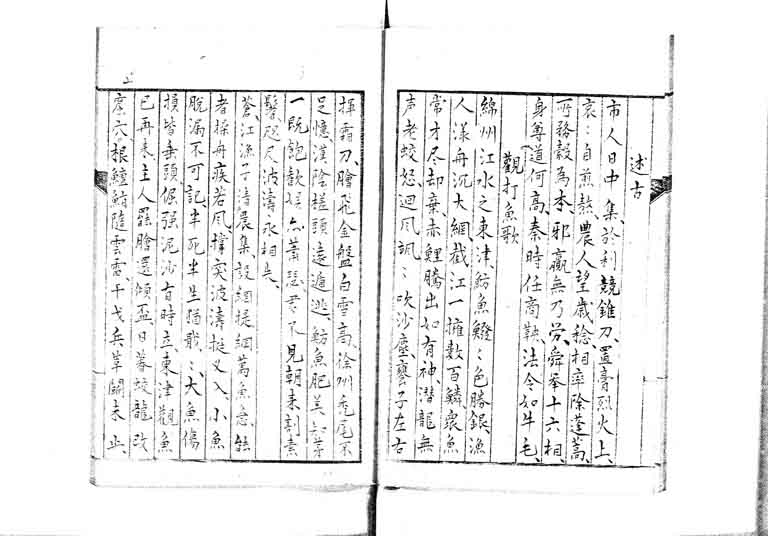 述古
市人日中集於利競錐刀置膏烈火上
哀哀自煎熬農人望歲稔相率除蓬蒿
所務穀為本邪贏無乃勞舜舉十六相
身尊道何高秦時任商鞅法令如牛毛
觀打魚歌
綿州江水之東津魴魚鱍鱍色勝銀漁
人漾舟沉大網截江一擁數百鱗衆魚
常才尽却棄赤鯉騰出如有神潛龍無
声老蛟怒迴風颯颯吹沙塵饔子左右
揮霜刀膾飛金盤白雪高徐州禿尾不
足憶漢陰槎頭遠遁逃魴魚肥美知第
一既飽歡娛亦蕭瑟君不見朝来割素
鬐咫尺波濤永相失
蒼江漁子清晨集設網提綱萬魚急能
者操舟疾若風撐突波濤挺叉入小魚
脫漏不可記半死半生猶戢戢大魚傷
損皆垂頭倔强泥沙有時立東津觀魚
已再来主人罷膾還傾盃日暮蛟龍改
窟穴根鱣鮪隨雲雷干戈兵革鬭未止